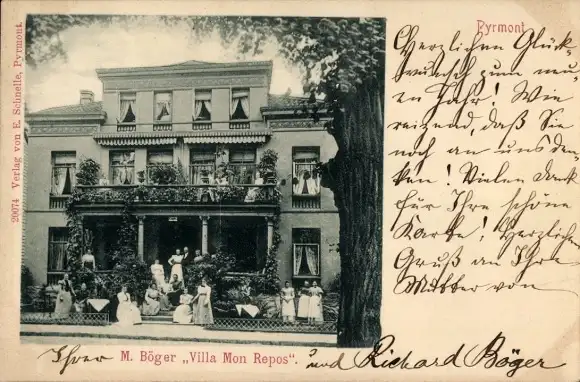 Pyrmont
Herzlichen Glück-
wunsch zum neu-
en Jahr! Wie
reizend, daß Sie
noch an uns den-
ken! Vielen Dank
für Ihre schöne
Karte! Herzlichen
Gruß an Ihre
Mutter von
Ihrer M. Böger „Villa Mon Repos“. und Richard Böger
20074 Verlag von E. Schnelle, Pyrmont.